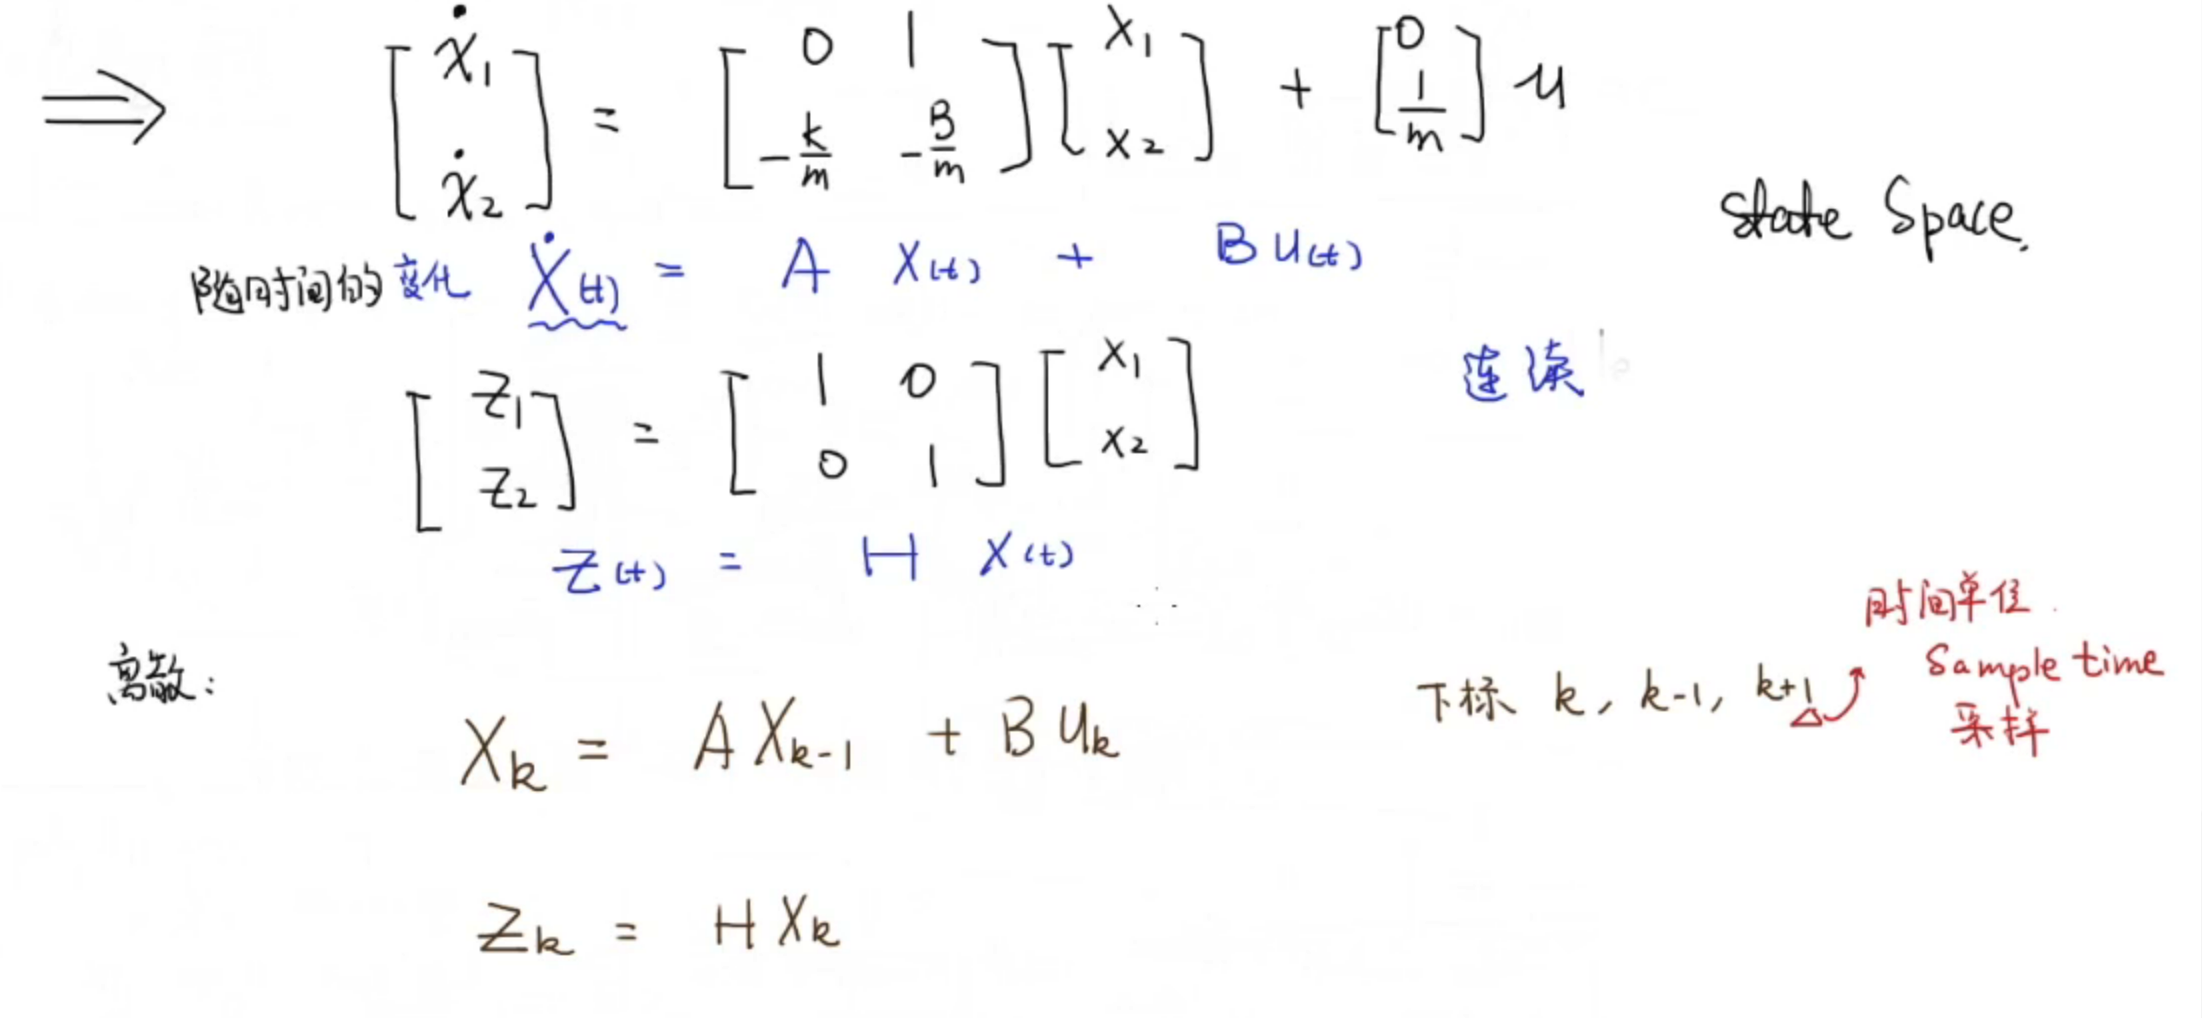 ⇒ [ẋ₁ ẋ₂] = [0 1 -k/m -B/m] [x₁ x₂] + [0 1/m] u
State Space.
随时间的变化 Ẋ(t) = A X(t) + B u(t)
[z₁ z₂] = [1 0 0 1] [x₁ x₂]
连续
Z(t) = H X(t)
离散:
下标 k, k-1, k+1
时间单位
Sample time
采样
Xₖ = A Xₖ₋₁ + B uₖ
Zₖ = H Xₖ